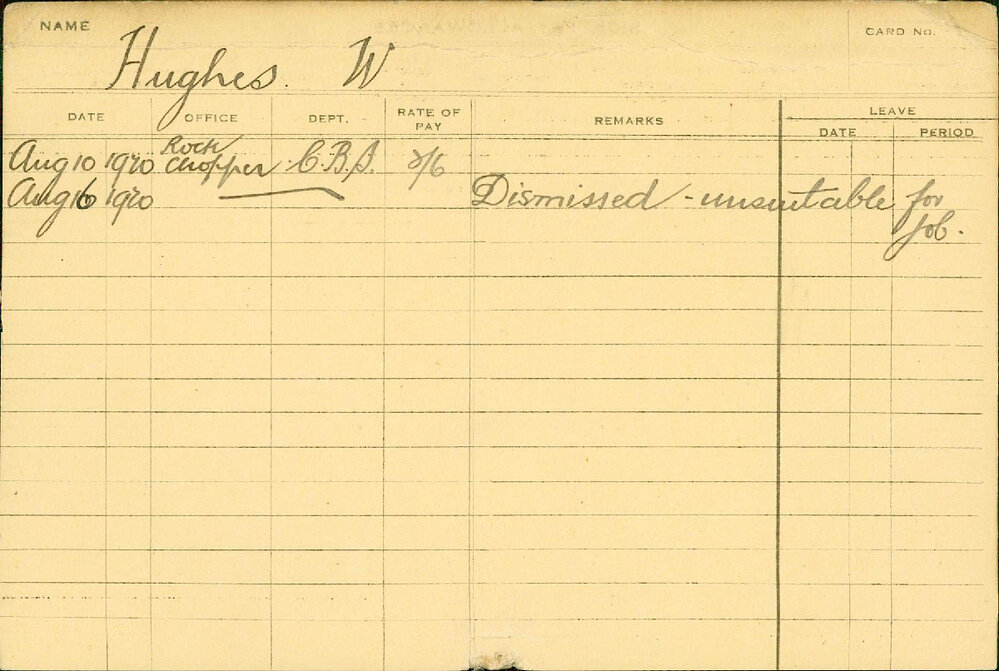 NAME
CARD NO.
Hughes. W
DATE OFFICE DEPT. RATE OF PAY REMARKS LEAVE
DATE PERIOD
Aug 10 1920 Rock Chopper C.B.S. 2/6
Aug 16 1920 Dismissed - unsuitable for
job.